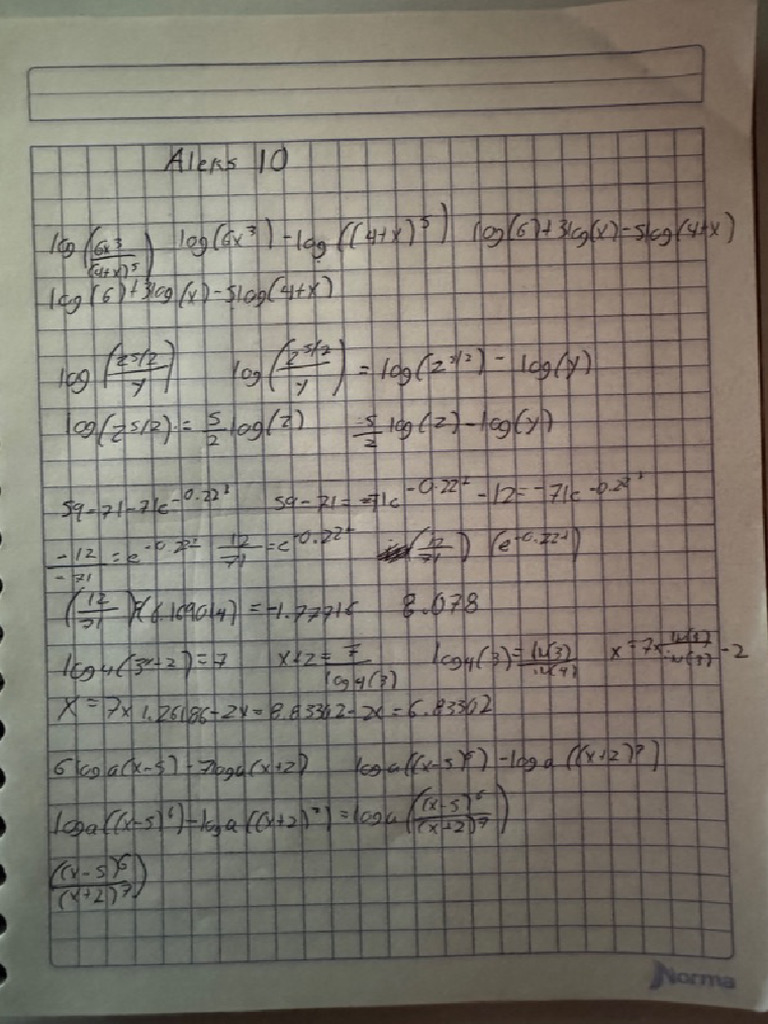 Aleks 10
log(6x³/(4+x)⁵) log(6x³) - log((4+x)⁵) log(6)+3log(x)-5log(4+x)
log(6)+3log(x)-5log(4+x)
log(z^5/2/y) log(z^5/2/y) = log(z^5/2) - log(y)
log(z^5/2) = 5/2 log(z) 5/2 log(z) - log(y)
59-71-71e^-0.22t 59-71 = -71e^-0.22t -12 = -71e^-0.22t
-12/-71 = e^-0.22t 12/71 = e^-0.22t (12/71) (e^-0.22t)
(12/71) = -1.77716 8.078
log4(3^x+2) = 7 x+2 = 7/log4(3) log4(3) = ln(3)/ln(4) -2
X = 7x1.26186-2x = 8.83302-2x = 6.83302
6loga(x-5) - 7loga(x+2) loga((x-5)⁶) - loga((x+2)⁷)
loga((x-5)⁶) - loga((x+2)⁷) = loga((x-5)⁶/(x+2)⁷)
((x-5)⁶/(x+2)⁷)
Norma